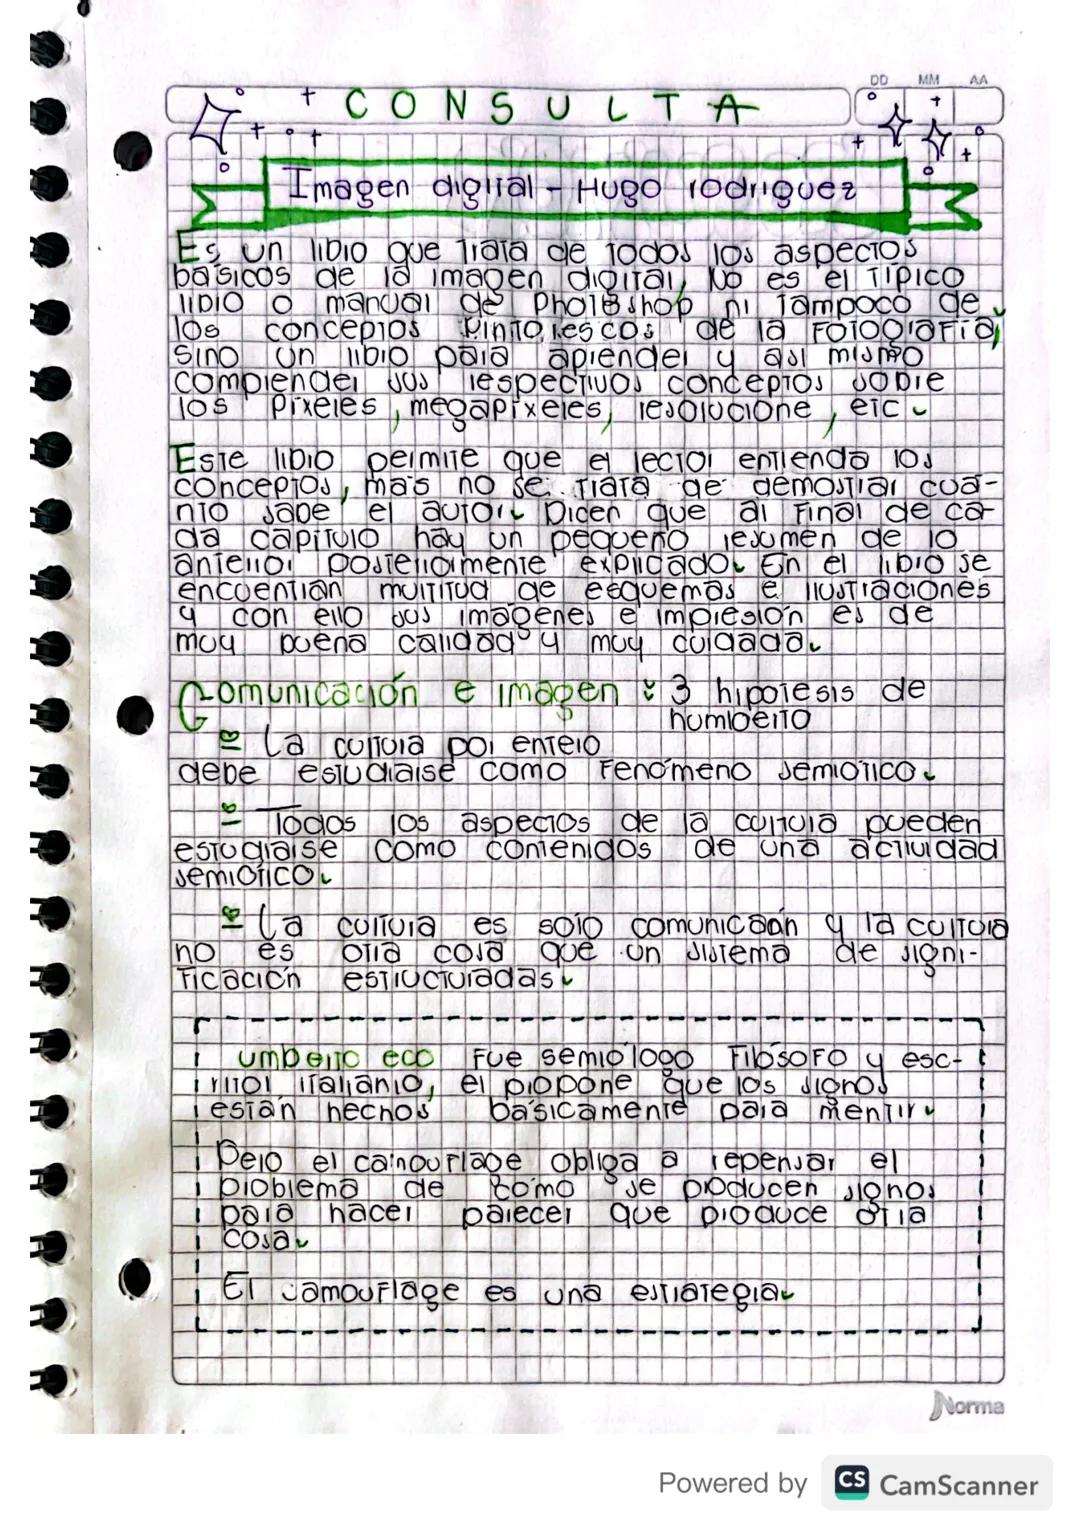 DD MM AA
CONSULTA
Imagen digital - Hugo rodriguez
Es un libro que Trata de Todos los aspectos
básicos de la imagen digital, No es el Típico
libro o manual de Photoshop ni Tampoco de
los conceptos Pintorescos de la Fotografía,
sino un libro para aprender y así mismo
comprender sus respectivos conceptos sobre
los Píxeles, megapíxeles, resolucione, etc.
Este libro permite que el lector entienda los
conceptos, más no se Trata de demostrar cuá-
nto sabe el autor. Dicen que al Final de ca-
da capítulo hay un pequeño resumen de lo
anterior posteriormente explicado. En el libro se
encuentran multitud de esquemas e ilustraciones
y con ello sus imágenes e impresión es de
muy buena calidad y muy cuidada.
Comunicación e imagen : 3 hipotesis de
humberto
La cultura por entero
debe estudiarse como Fenómeno semiótico.
Todos los aspectos de la cultura pueden
estudiarse como contenidos de una actividad
semiótico.
La cultura es solo comunicaón y la cultura
no es otra cosa que un sistema de signi-
ficación estructuradas.
umberto eco Fue semiólogo Filósofo y esc-
ritor italianio, el propone que los signos
están hechos básicamente para mentir.
Pero el camouflage obliga a repensar el
problema de cómo se producen signos
para hacer parecer que produce otra
cosa.
El camouflage es una estrategia.
Norma
Powered by CS CamScanner